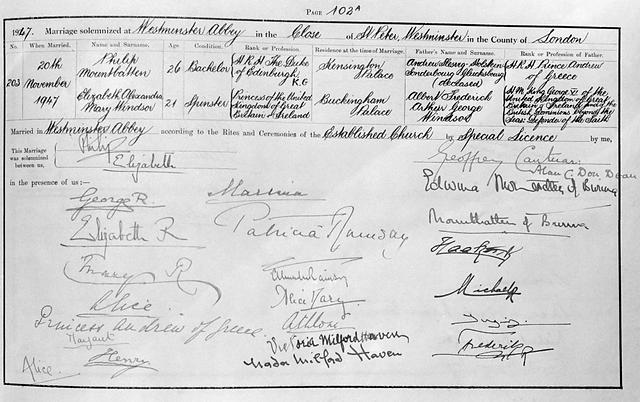 PAGE 102A
1947. Marriage solemnized at Westminster Abbey in the Close of St Peter, Westminster in the County of London
No. When Married. Name and Surname. Age Condition. Rank or Profession. Residence at the time of Marriage. Father's Name and Surname. Rank or Profession of Father.
203
20th November 1947
Philip Mountbatten 26 Bachelor H R H The Duke of Edinburgh K G Kensington Palace Andrew (deceased) H R H Prince Andrew of Greece
Elizabeth Alexandra Mary Windsor 21 Spinster Princess of the United Kingdom of Great Britain & Ireland Buckingham Palace Albert Frederick Arthur George Windsor H M King George VI of the United Kingdom of Great Britain & Ireland and of the British Dominions beyond the Seas: Defender of the Faith
Married in Westminster Abbey according to the Rites and Ceremonies of the Established Church by Special Licence by me,
This Marriage was solemnized between us,
Philip
Elizabeth
Geoffrey Cantuar:
Alan C Don Dean
in the presence of us :—
George R.
Elizabeth R
Mary R
Alice
Princess Andrew of Greece
Margaret
Henry
Alice.
Marina
Patricia Ramsay
Alice Mary
Athlone
Victoria Milford Haven
Nada Milford Haven
Edwina Mountbatten of Burma
Mountbatten of Burma
Haakon R
Michael R
Frederik